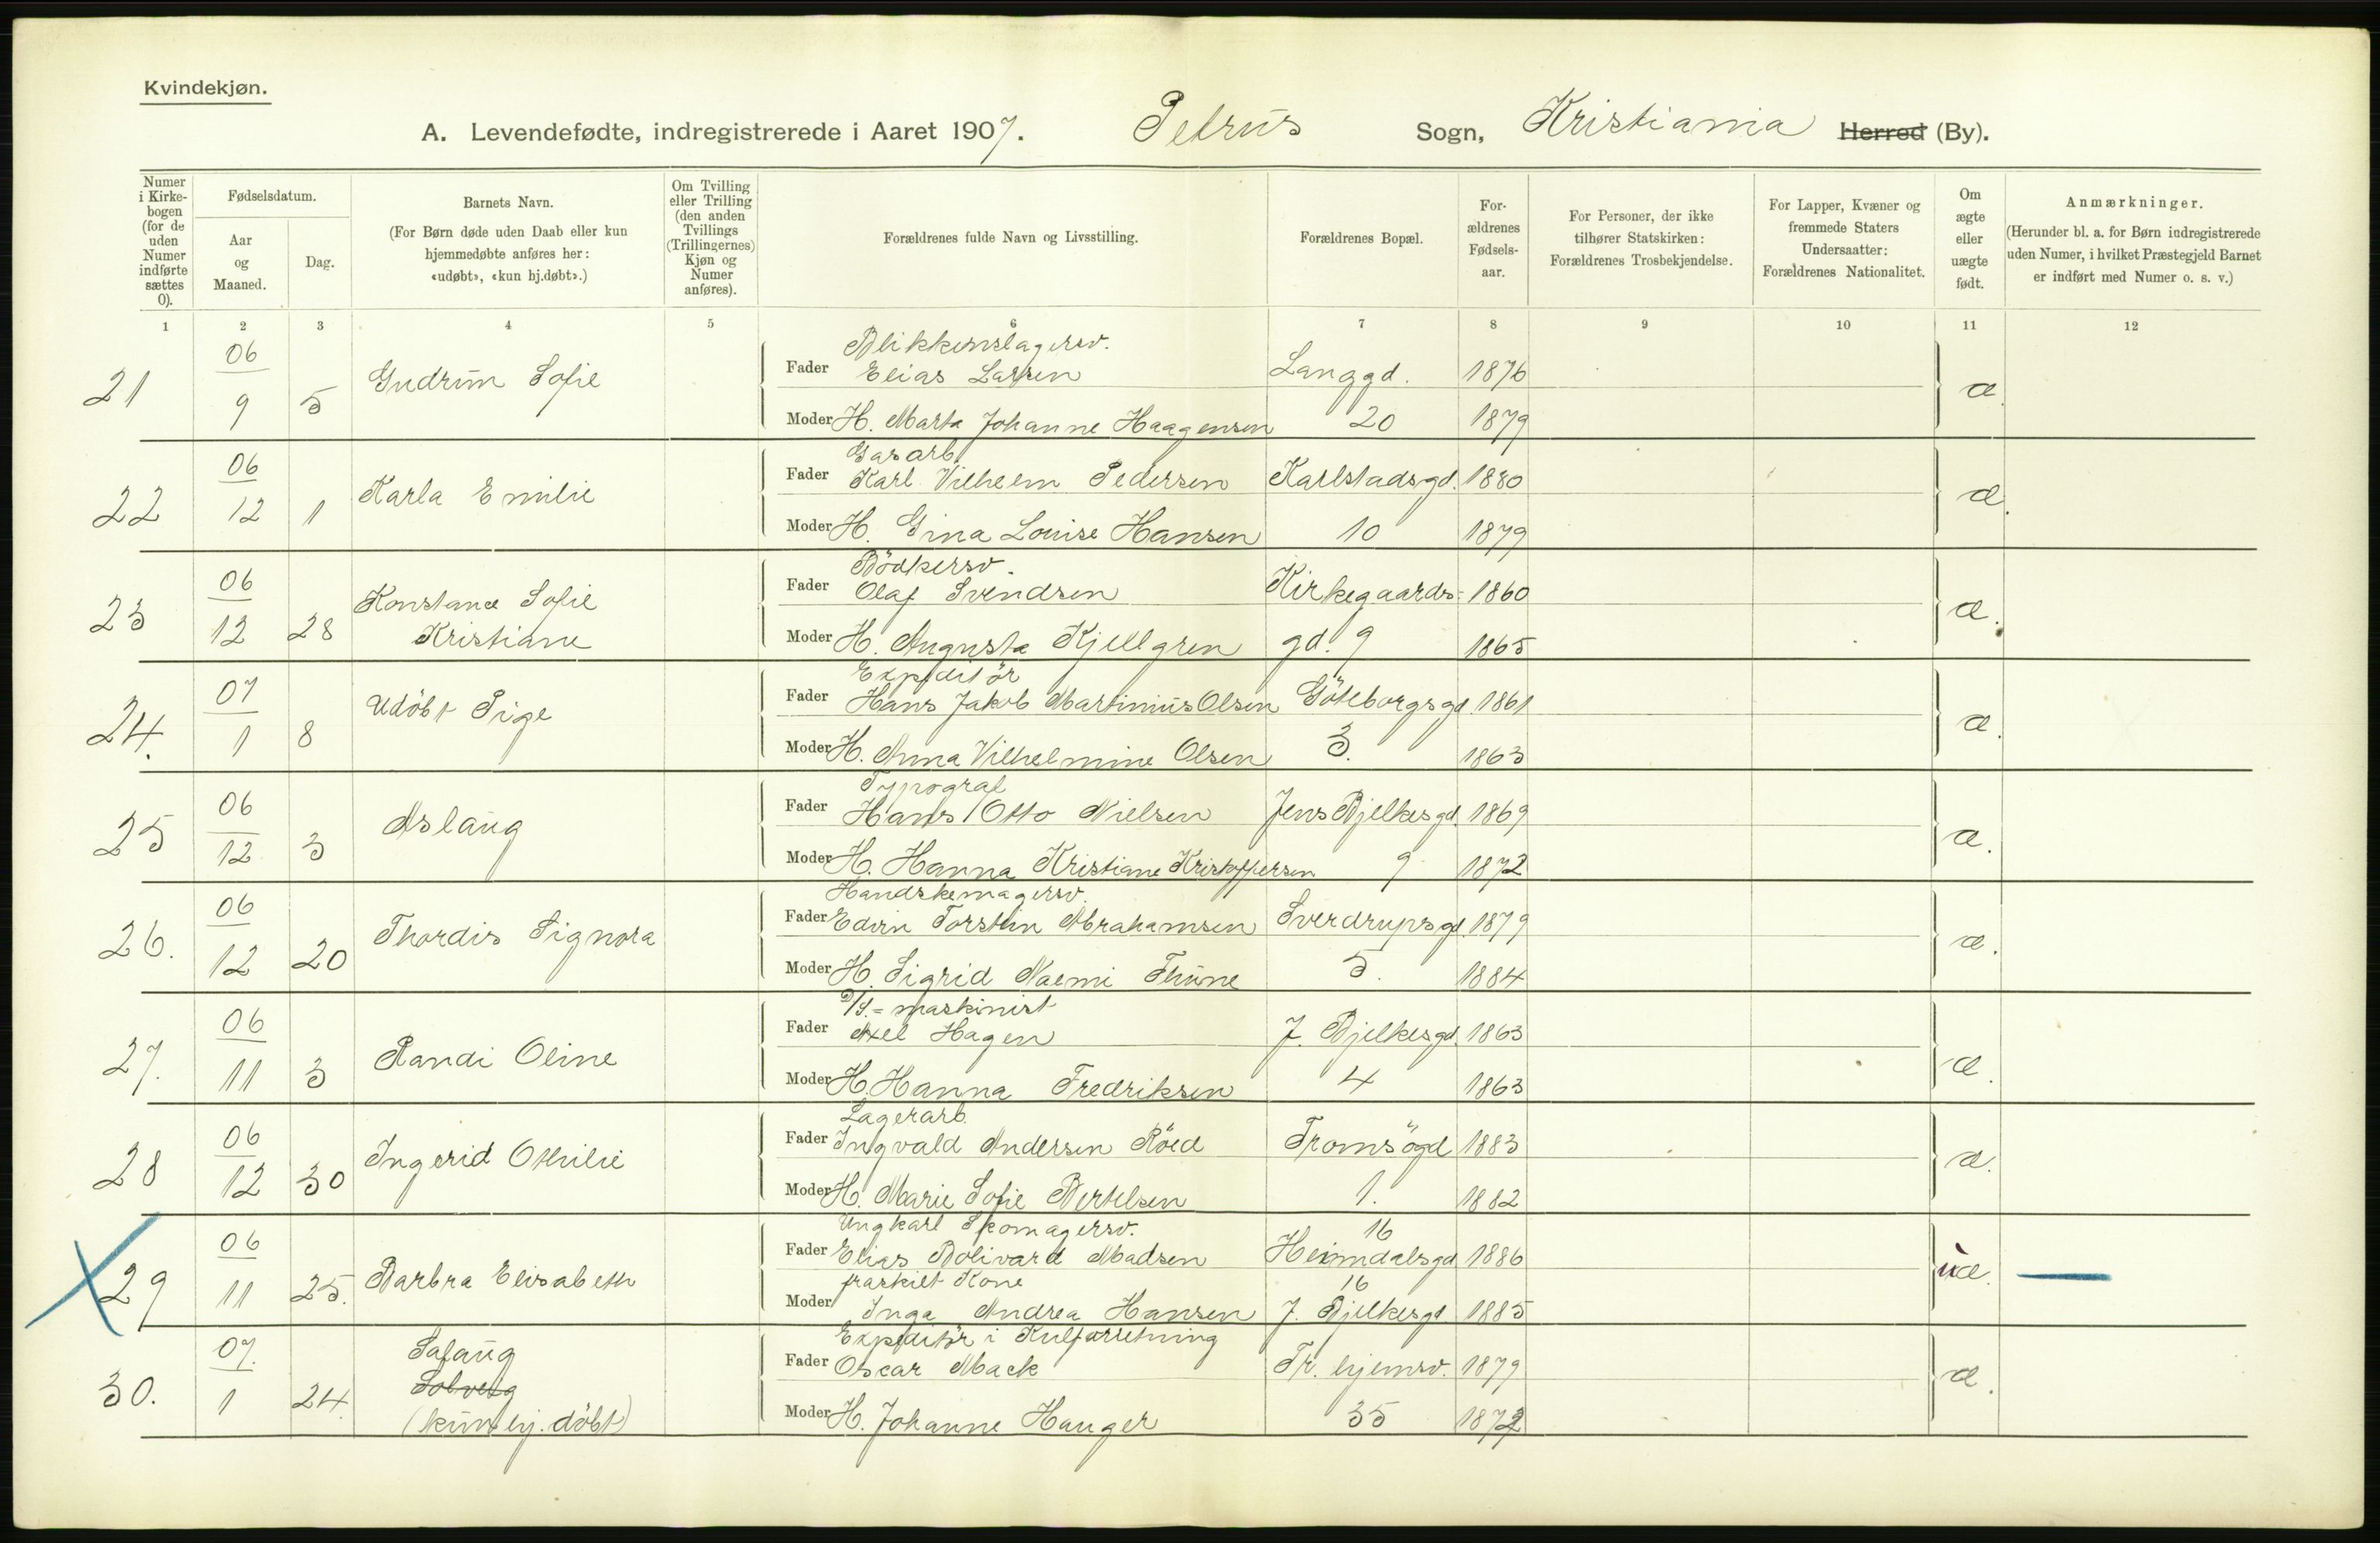 Kvindekjøn.
A. Levendefødte, indregistrerede i Aaret 1907. Petrus Sogn, Kristiania Herred (By).
Numer i Kirke-bogen (for de uden Numer indførte sættes 0).
Fødselsdatum.
Aar og Maaned.
Dag.
Barnets Navn.
(For Børn døde uden Daab eller kun hjemmedøbte anføres her: «udøbt», «kun hj.døbt».)
Om Tvilling eller Trilling (den anden Tvillings (Trillingernes) Kjøn og Numer anføres).
Forældrenes fulde Navn og Livsstilling.
Forældrenes Bopæl.
For-ældrenes Fødsels-aar.
For Personer, der ikke tilhører Statskirken: Forældrenes Trosbekjendelse.
For Lapper, Kvæner og fremmede Staters Undersaatter: Forældrenes Nationalitet.
Om ægte eller uægte født.
Anmærkninger.
(Herunder bl. a. for Børn indregistrerede uden Numer, i hvilket Præstegjeld Barnet er indført med Numer o. s. v.)
1 2 3 4 5 6 7 8 9 10 11 12
21 06 9 5 Gudrun Sofie
Blikkenslagersv.
Fader Elias Larsen Langgd. 1876 æ.
Moder H. Marta Johanne Haagensen 20 1879
22 06 12 1 Karla Emilie
Gasarb.
Fader Karl Vilhelm Pedersen Karlstadsgd. 1880 æ.
Moder H. Gina Louise Hansen 10 1879
23 06 12 28 Konstance Sofie Kristiane
Bödkersv.
Fader Olaf Svendsen Kirkegaards- 1860 æ.
Moder H. Augusta Kjellgren gd. 9 1865
24. 07 1 8 Udöbt Pige
Expeditör
Fader Hans Jakob Martinius Olsen Göteborgsgd. 1861 æ.
Moder H. Anna Vilhelmine Olsen 3. 1863
25 06 12 3 Aslaug
Typograf
Fader Hans Otto Nielsen Jens Bjelkesgd. 1869 æ.
Moder H. Hanna Kristiane Kristoffersen 9 1872
26. 06 12 20 Thordis Signora
Handskemagersv.
Fader Edvin Torstein Abrahamsen Sverdrupsgd. 1879 æ.
Moder H. Sigrid Naemi Thune 5. 1884
27. 06 11 3 Randi Oline
D/S.=maskinist
Fader Axel Hagen J. Bjelkesgd. 1863 æ.
Moder H. Hanna Fredriksen 4 1863
28 06 12 30 Ingerid Othilie
Lagerarb.
Fader Ingvald Andersen Röed Tromsögd 1883 æ.
Moder H. Marie Sofie Bertelsen 1. 1882
29 06 11 25. Barbra Elisabeth
Ungkarl Skomagersv. 16
Fader Elias Bolivard Madsen Heimdalsgd 1886 uæ. —
fraskilt Kone 16
Moder Inga Andrea Hansen J. Bjelkesgd. 1885
30. 07. 1 24. Salaug
Solveig
(kun hj. döbt)
Expeditör i Kulforretning
Fader Oscar Mack Tr. hjemsv. 1879 æ.
Moder H. Johanne Hauger 35